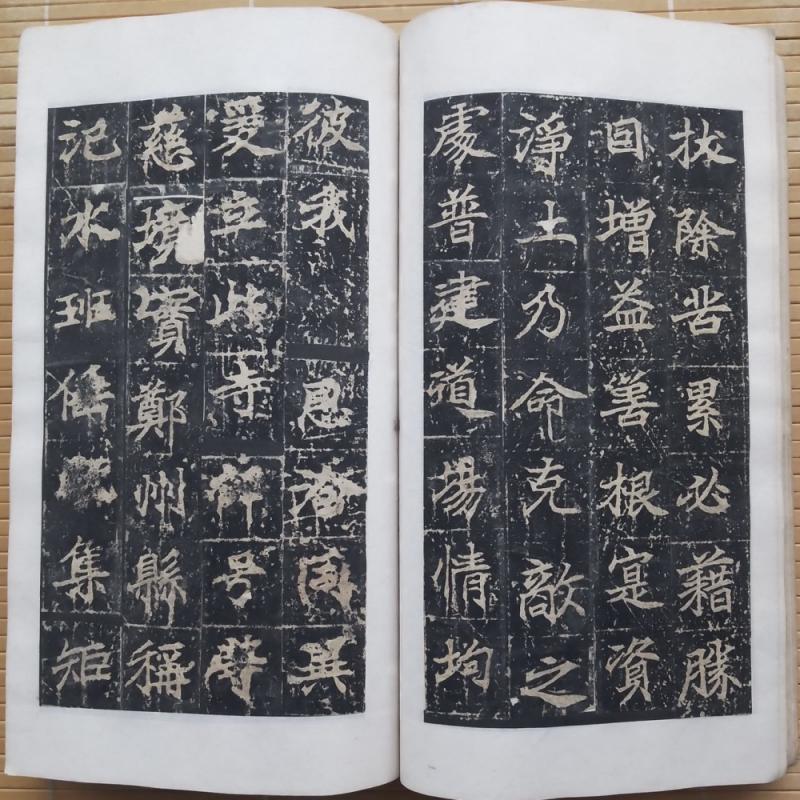 拔除苦累必藉勝
囙增益善根寔資
淨土乃命克敵之
處普建道場情均
彼我恩洽同異
爰立此寺俾号等
慈境實鄭州縣稱
汜水班倕集矩